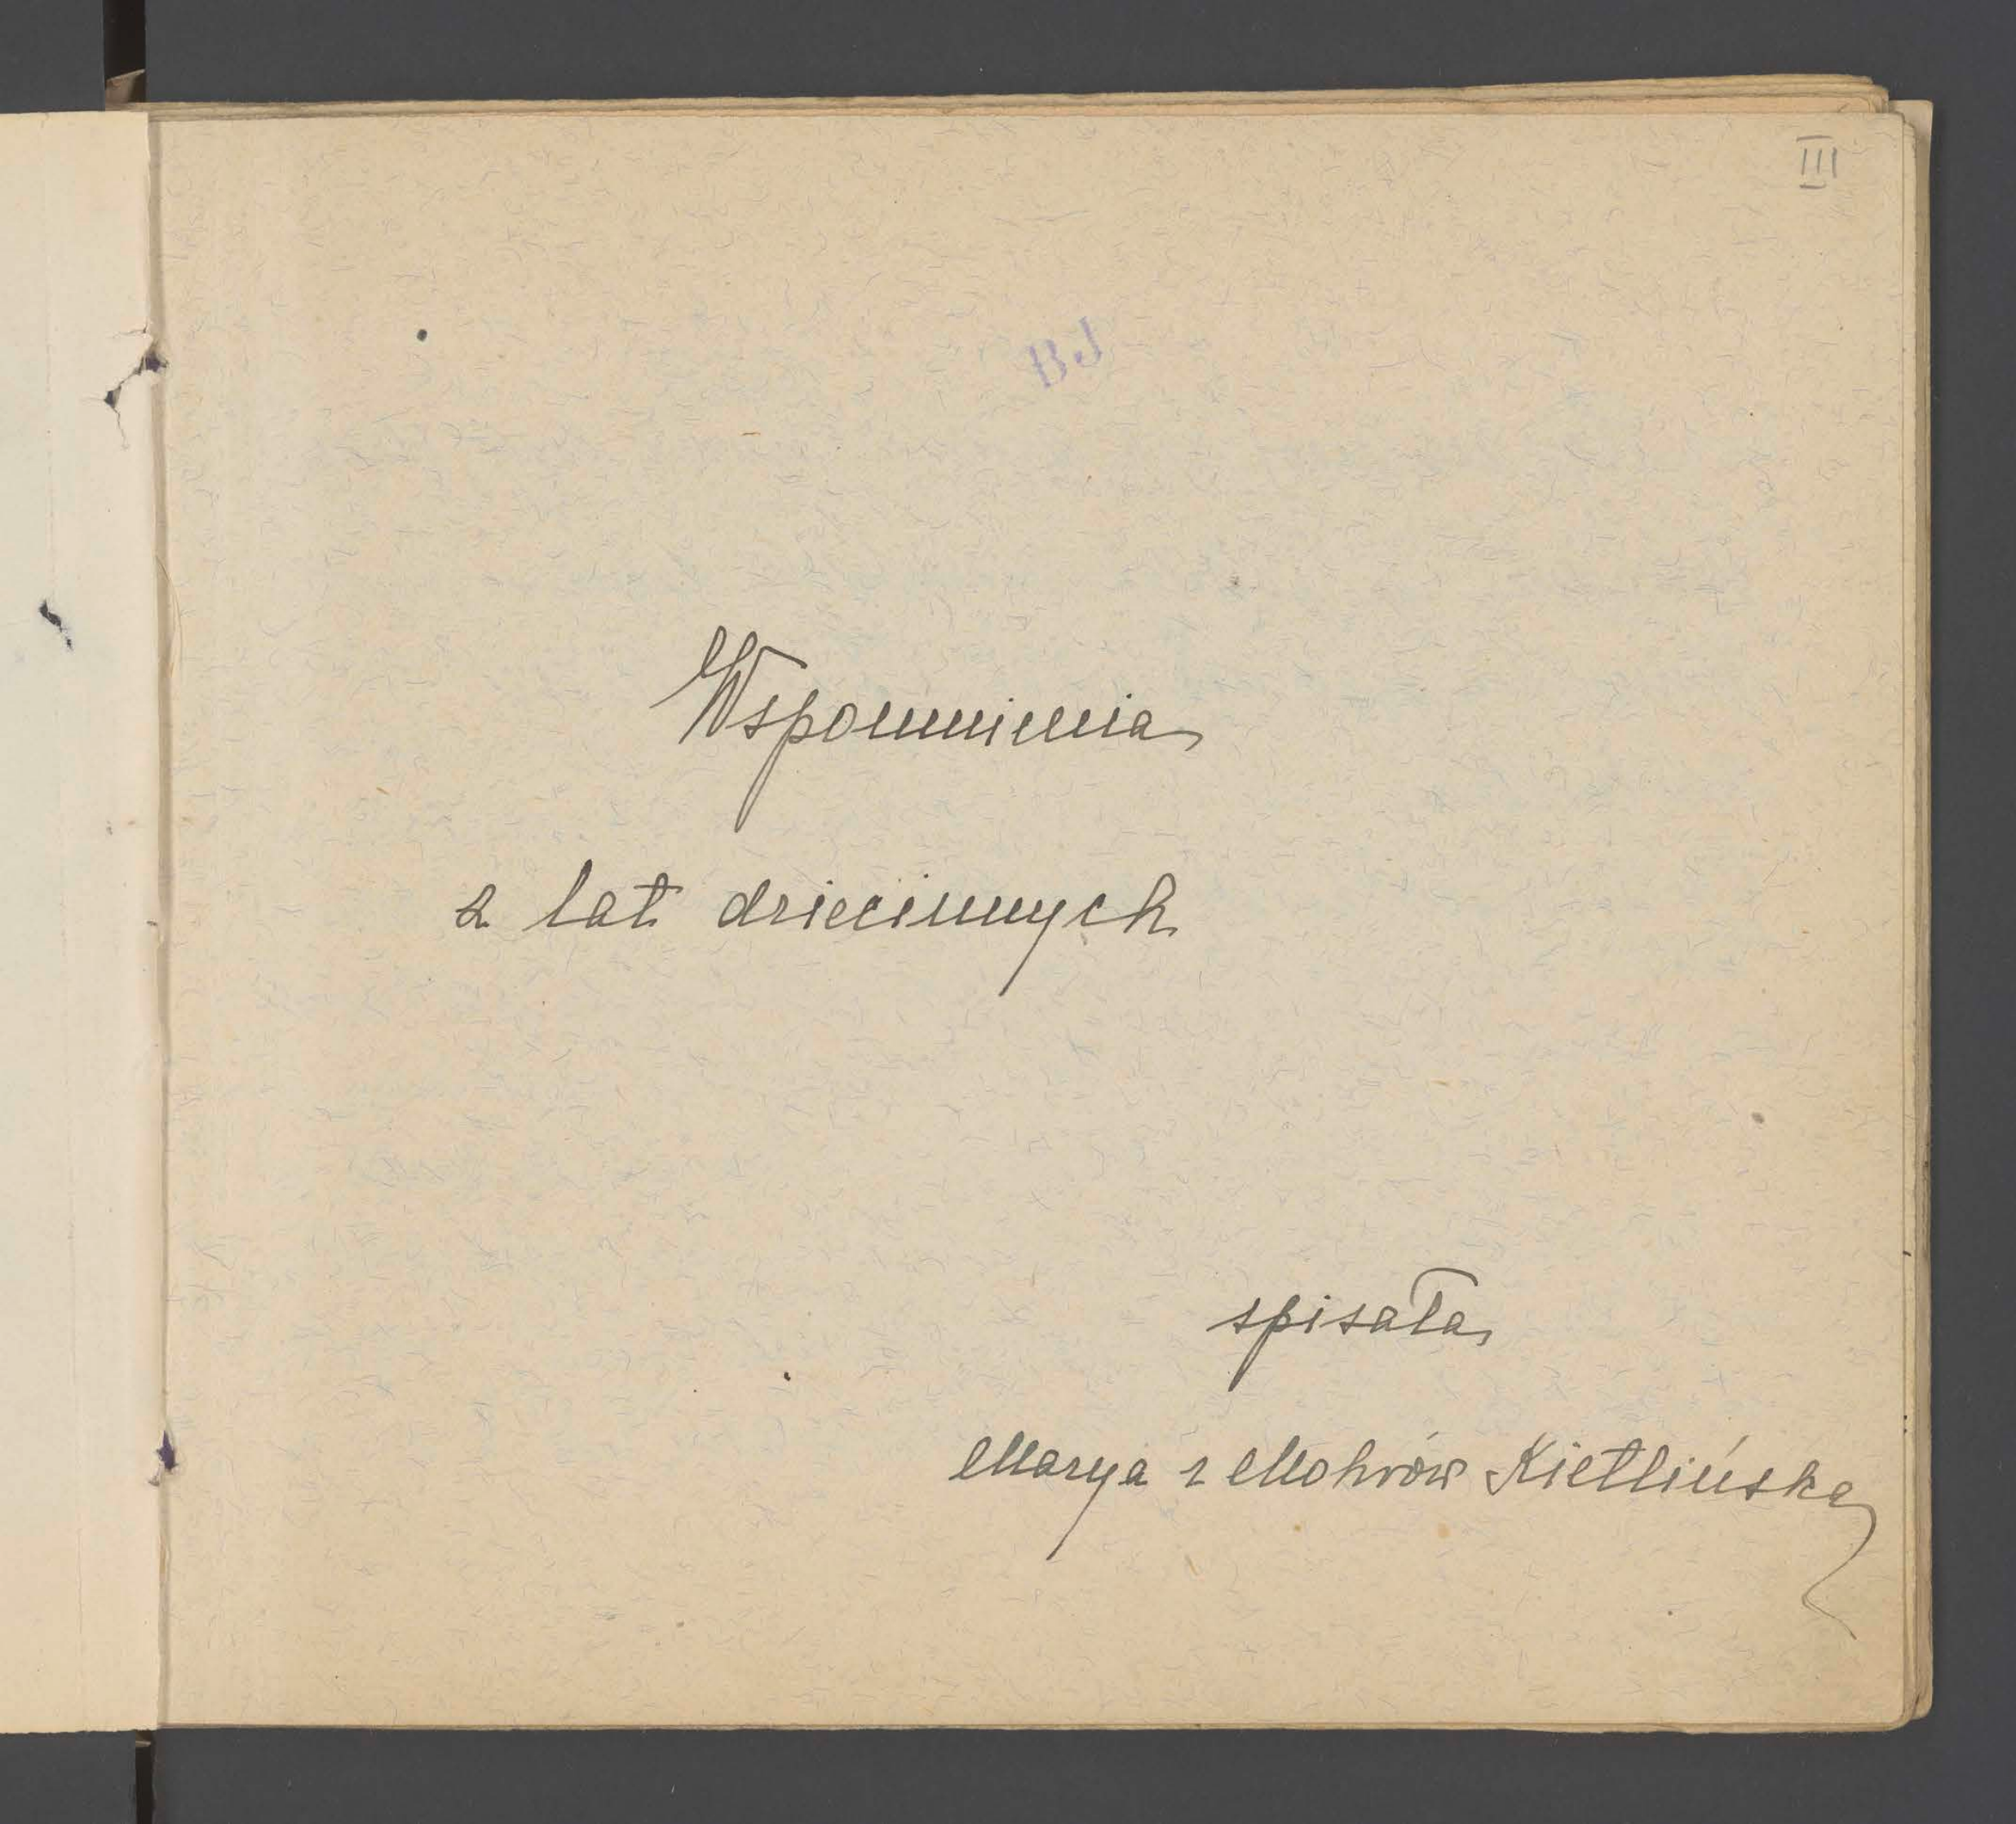 III
BJ
Wspomnienia
z lat dziecinnych
spisała
Marya z Mohrów Kietlińska